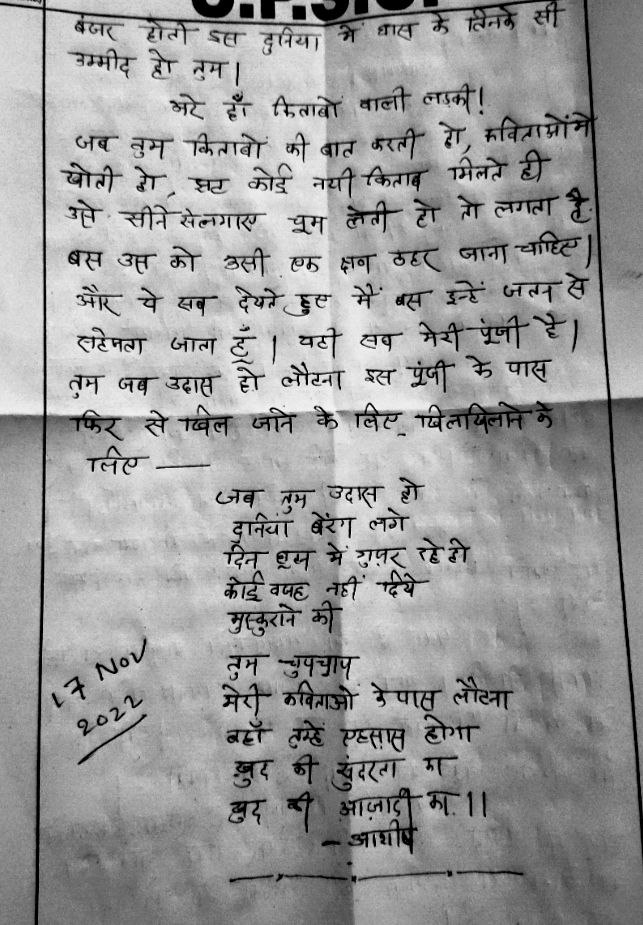 U.P.S.C.
बंजर होती इस दुनिया में घास के तिनके सी
उम्मीद हो तुम।
अरे हाँ किताबों वाली लड़की!
जब तुम किताबों की बात करती हो, कविताओं में
खोती हो, झट कोई नयी किताब मिलते ही
उसे सीने से लगाए चूम लेती हो तो लगता है
बस उस को उसी एक क्षण ठहर जाना चाहिए।
और ये सब देखते हुए मैं बस इन्हें जतन से
सहेजता जाता हूँ। यही सब मेरी पूंजी है।
तुम जब उदास हो लौटना इस पूंजी के पास
फिर से खिल जाने के लिए_ खिलखिलाने के
लिए —
जब तुम उदास हो
दुनियां बेरंग लगे
दिन शून्य में गुज़र रहे हो
कोई वजह नहीं दिखे
मुस्कुराने की
तुम चुपचाप
मेरी कविताओं के पास लौटना
वहाँ तुम्हें एहसास होगा
ख़ुद की सुंदरता का
ख़ुद की आज़ादी का।।
– आशीष
17 Nov
2022